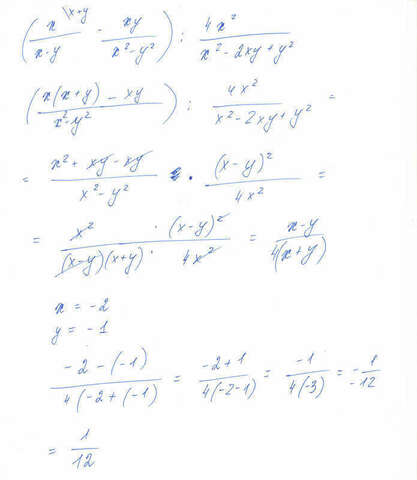 (x\x+y/x-y - xy/x²-y²) : 4x²/x²-2xy+y²
(x(x+y) - xy/x²-y²) : 4x²/x²-2xy+y² =
= x²+xy-xy/x²-y² · (x-y)²/4x² =
= x² · (x-y)²/(x-y)(x+y) · 4x² = x-y/4(x+y)
x = -2
y = -1
-2-(-1)/4(-2+(-1) = -2+1/4(-2-1) = -1/4(-3) = -1/-12
= 1/12